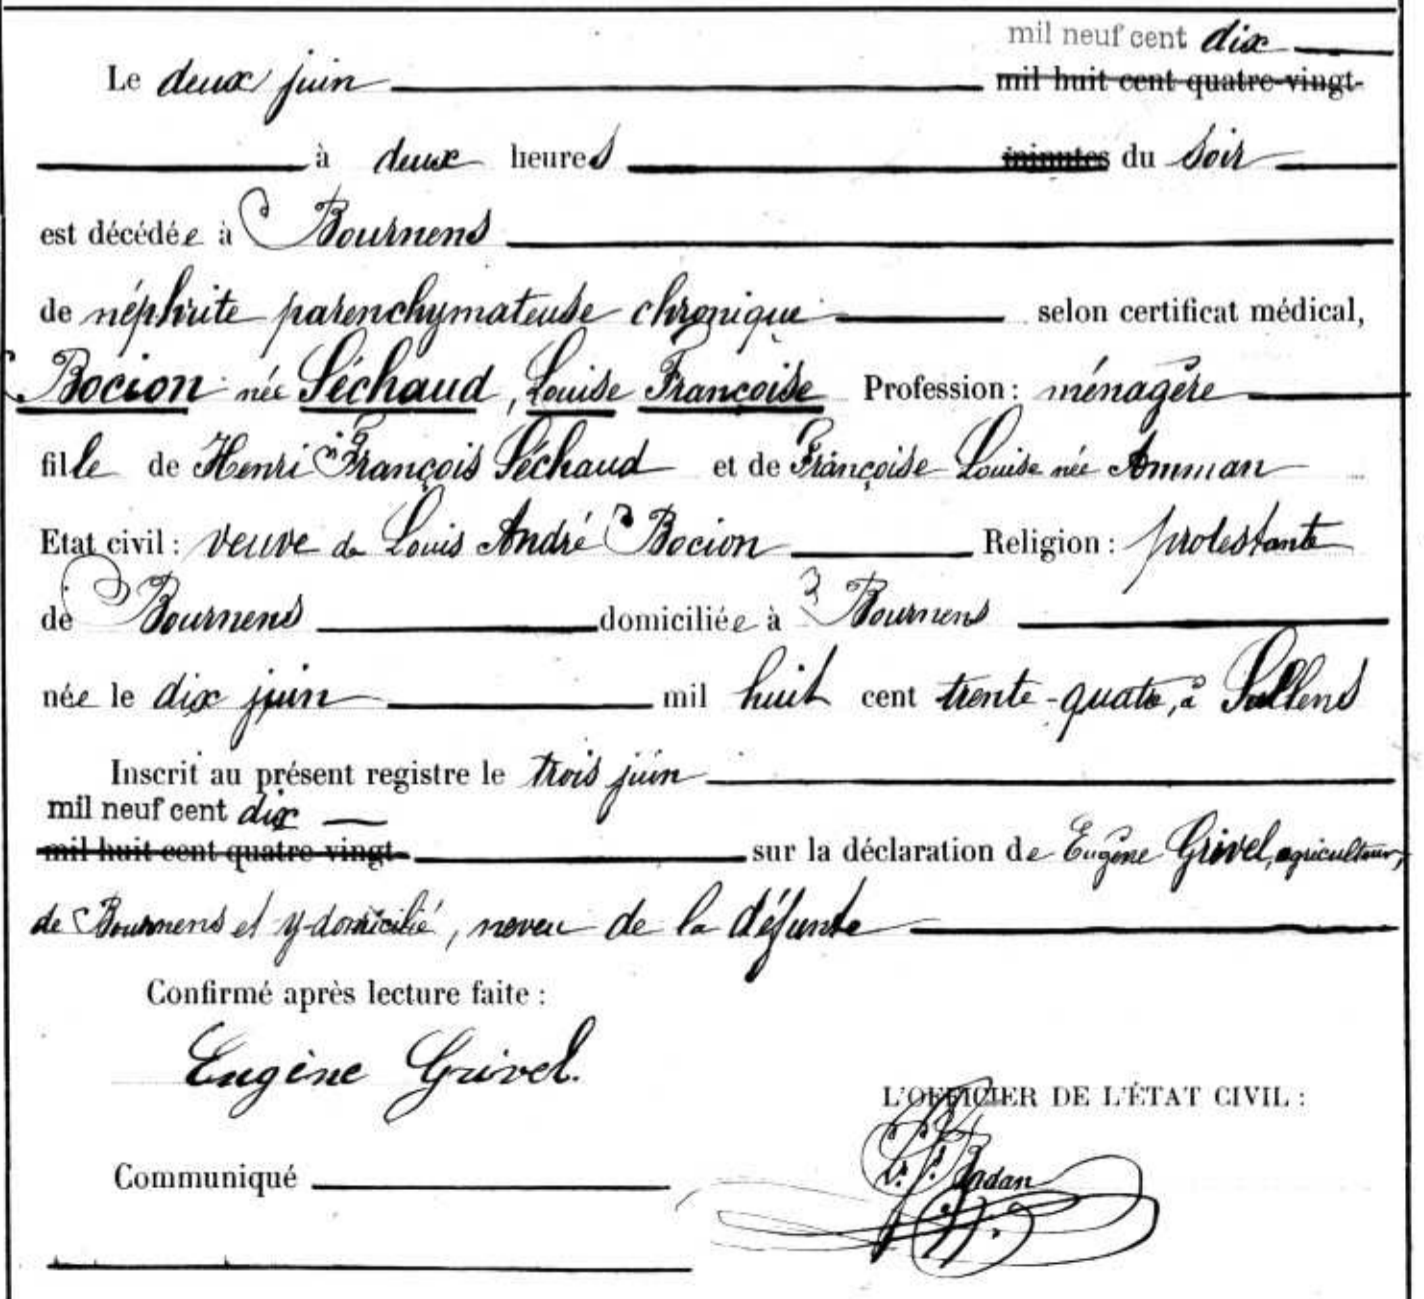 mil neuf cent dix
Le deux juin mil huit cent quatre-vingt-
à deux heures minutes du soir
est décédée à Bournens
de néphrite parenchymateuse chronique selon certificat médical,
Bocion née Séchaud, Louise Françoise Profession: ménagère
fille de Henri François Séchaud et de Françoise Louise née Amman
Etat civil: veuve de Louis André Bocion Religion: protestante
de Bournens domiciliée à Bournens
née le dix juin mil huit cent trente-quatre, à Sullens
Inscrit au présent registre le trois juin
mil neuf cent dix
mil huit cent quatre-vingt- sur la déclaration de Eugène Grivel, agriculteur,
de Bournens et y domicilié, neveu de la défunte
Confirmé après lecture faite:
Eugène Grivel.
L'OFFICIER DE L'ÉTAT CIVIL:
Badan
Communiqué